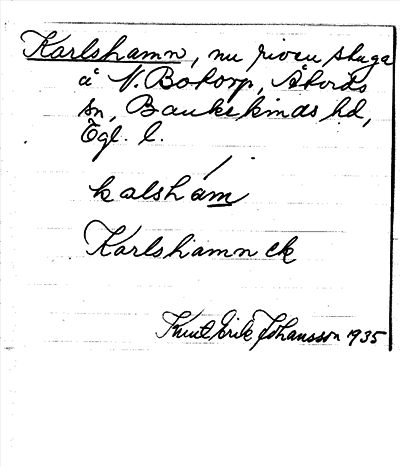 Karlshamn, nu riven stuga
å N. Botorp, Åtvids
sn, Bankekinds hd,
Ögl. l.
kalshám
Karlshamn ek
Knut Erik Johansson 1935